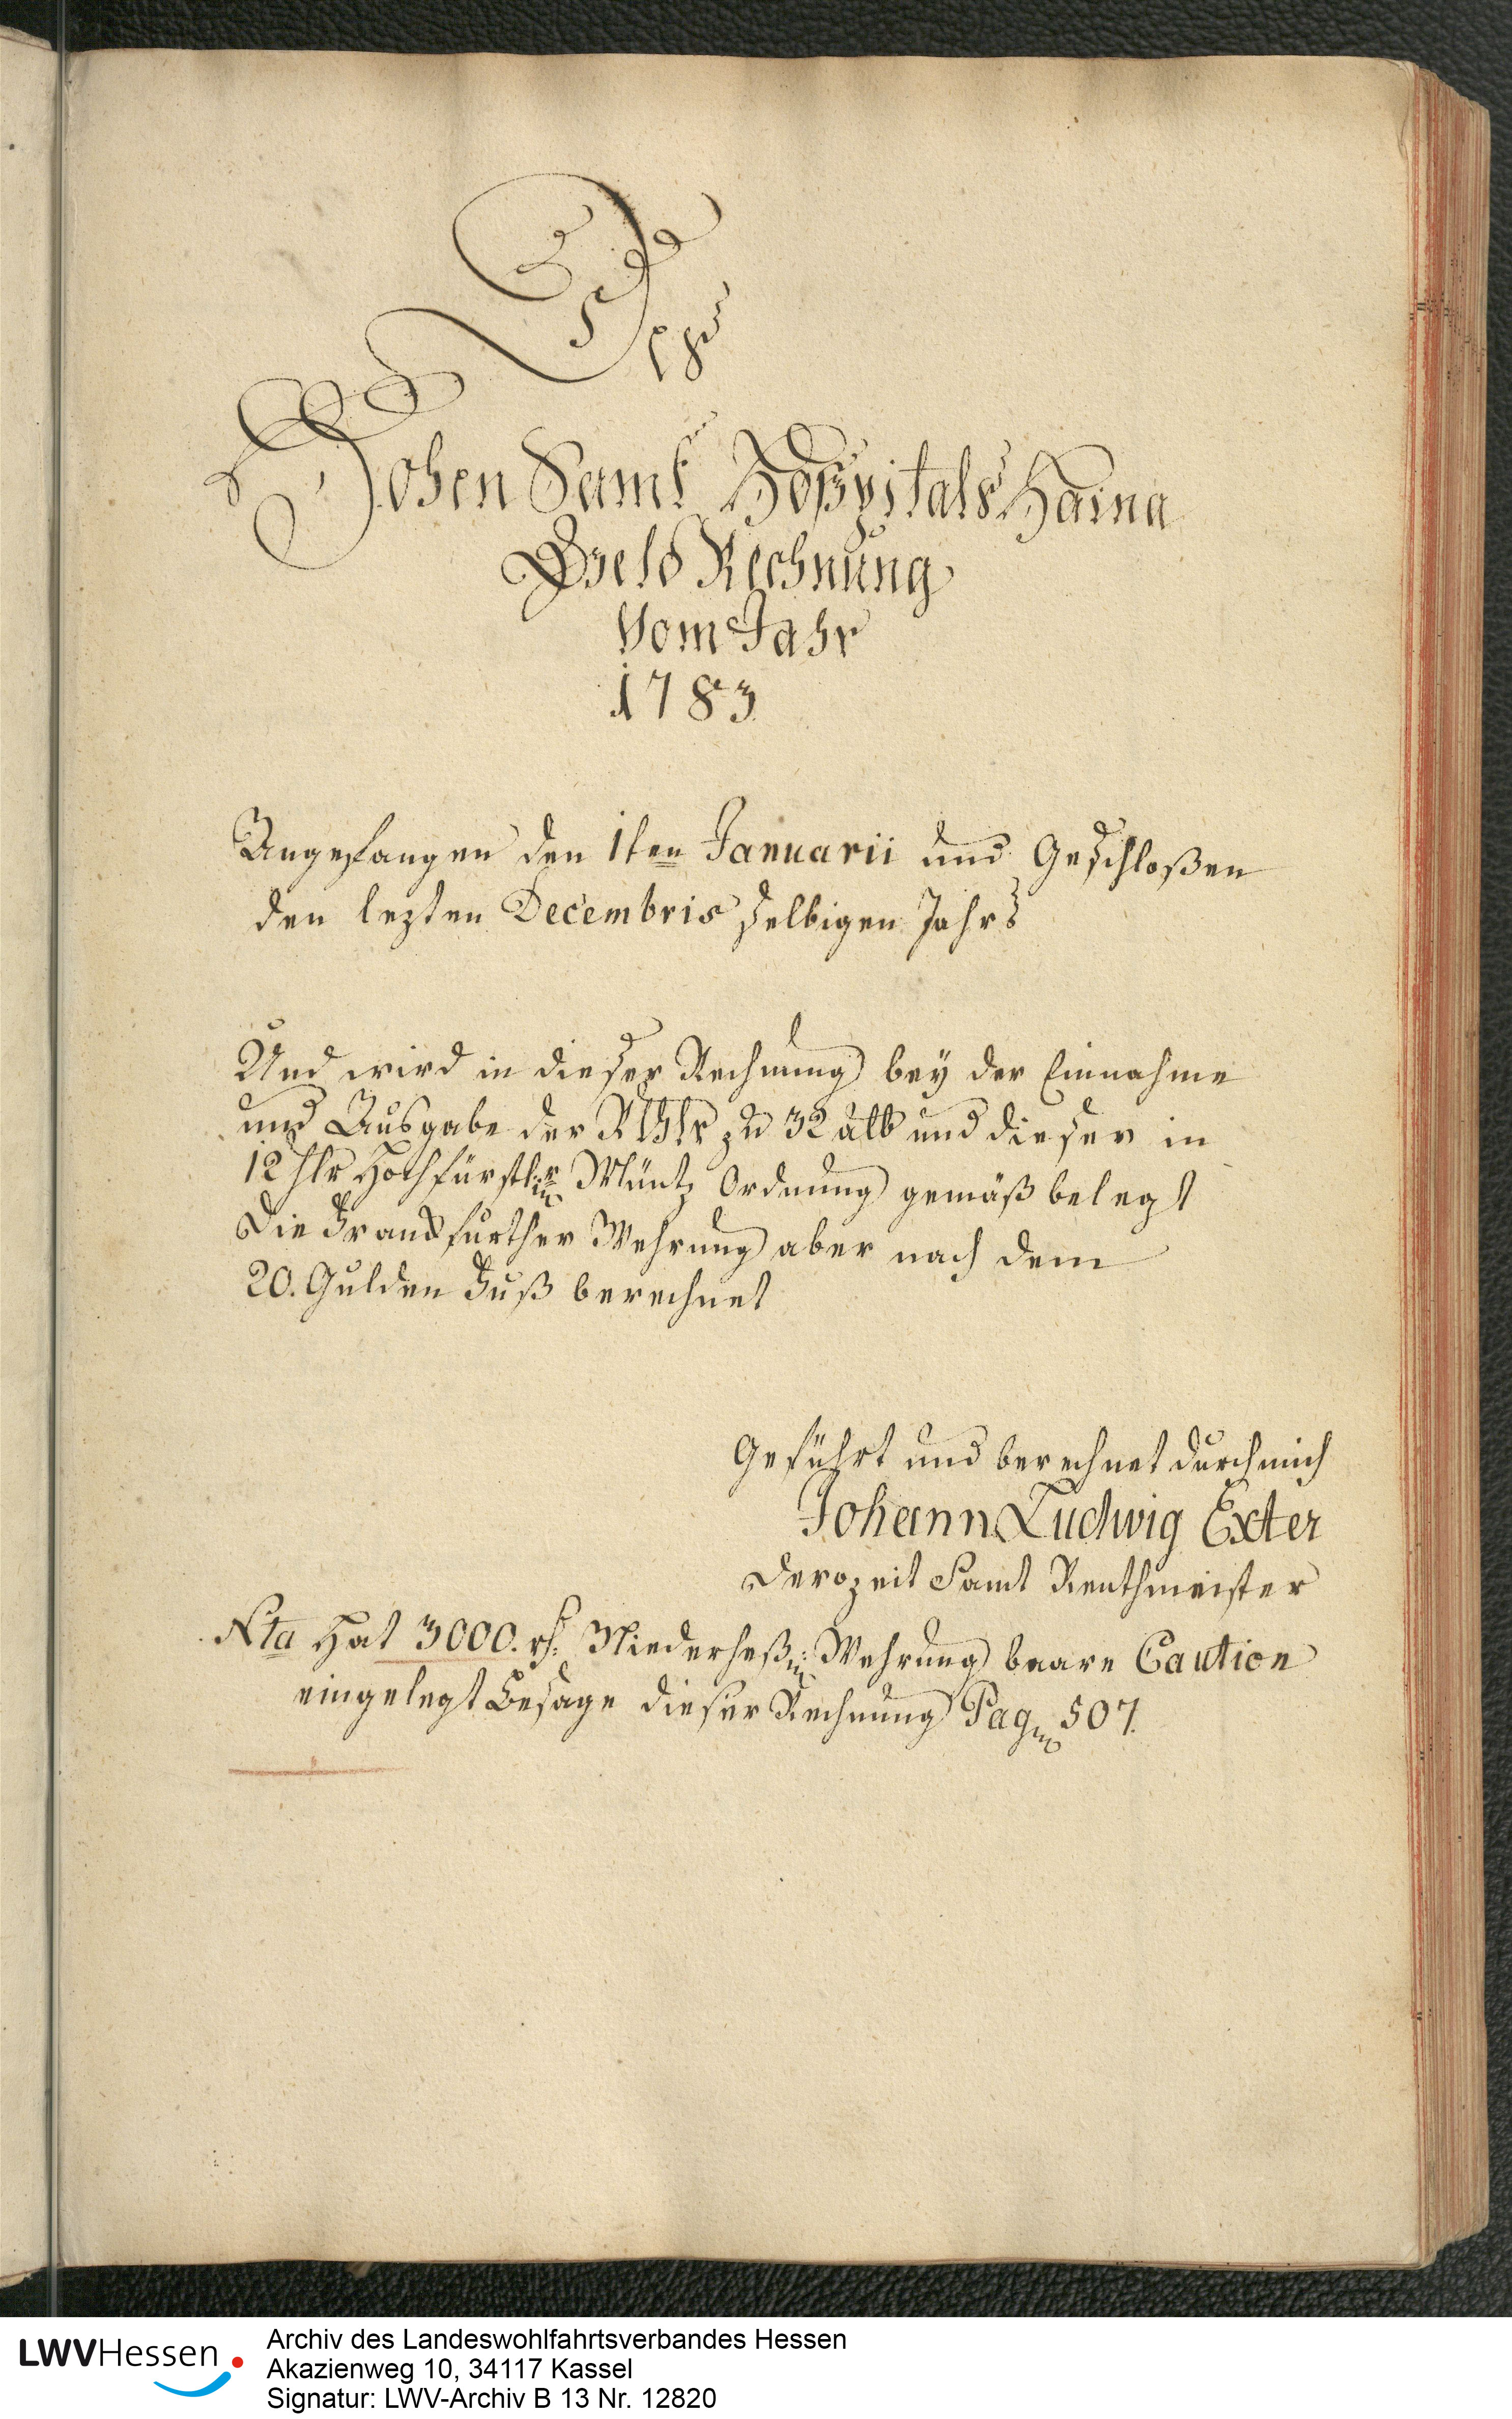 Des
Hohen Samt Hoßpitals Haina
Geld Rechnung
Vom Jahr
1783
Angefangen den 1ten Januarii und Geschloßen
den lezten Decembris selbigen Jahrs
Und wird in dieser Rechnung bey der Einnahme
und Ausgabe der Rthlr zu 32 alb und dieser in
12 hlr Hochfürstler Müntz Ordnung gemäß belegt
Die Franckfurther Wehrung aber nach dem
20. Gulden Fuß berechnet
Geführt und berechnet durch mich
Johann Ludwig Exter
Derozeit Samt Renthmeister
Nta Hat 3000. rh: Niederheß: Wehrung baare Caution
eingelegt Besage dieser Rechnung Pag 507.
LWVHessen
Archiv des Landeswohlfahrtsverbandes Hessen
Akazienweg 10, 34117 Kassel
Signatur: LWV-Archiv B 13 Nr. 12820